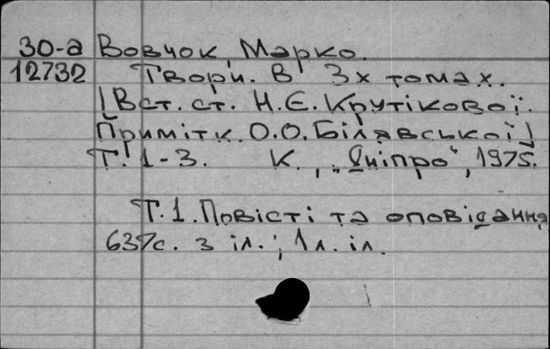 30-а Вовчок, Марко.
12732 Твори. В 3х томах.
|Вст. ст. Н.Є.Крутікової.
Примітк. О.О.Білявської|
Т. 1-3. К., „Дніпро", 1975.
Т.1. Повісті та оповідання
637с. з іл.; 1л. іл.